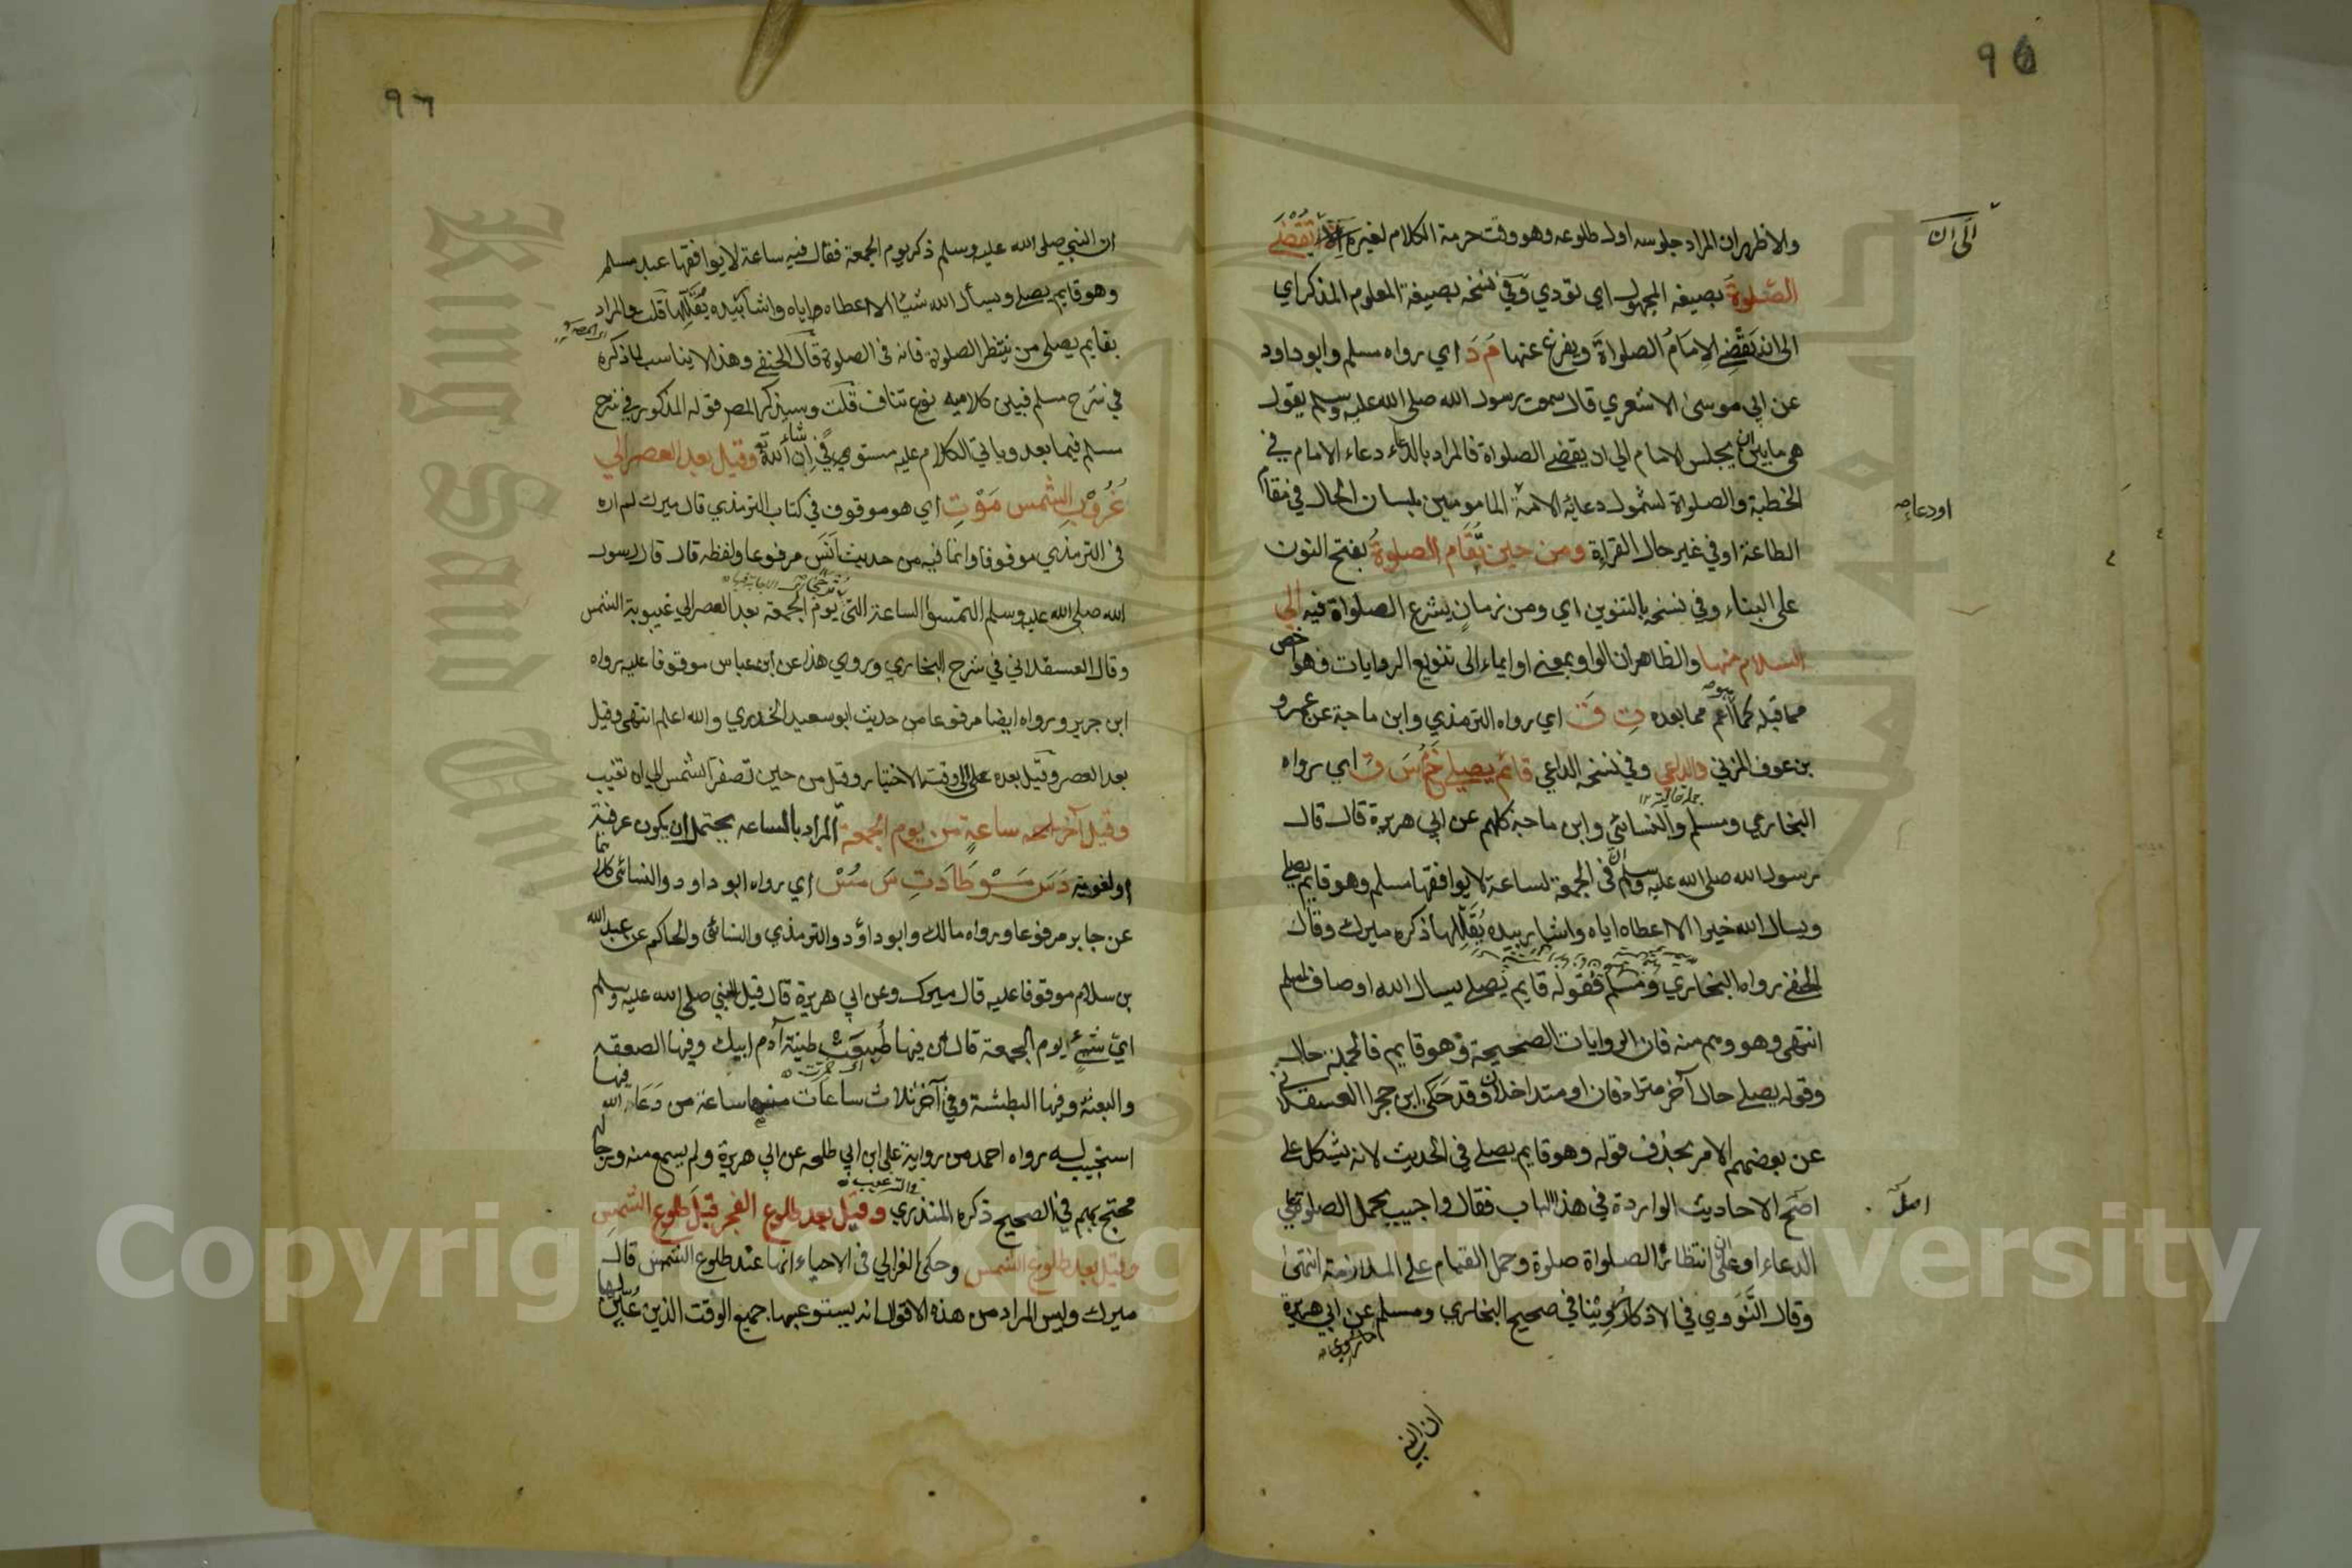 ٩٥
والاظهر ان المراد جلوسه اول طلوعه وهو وقت حرمة الكلام لغيره تُقْضَى
الصَّلوةُ بصيغه المجهول اي تودي وفي نسخه بصيغة المعلوم المذكر اي
الى ان يَقْضِيَ الاِمَامُ الصلواةَ ويفرغ عنها مَ دَ اي رواه مسلم وابو داود
عن ابي موسى الاشعري قال سمعت رسول الله صلى الله عليه وسلم يقول
هي ما بين ان يجلس الامام الي ان يقضے الصلواة فالمراد بالدعاء دعاء الامام في
الخطبة والصلواة لشمول دعائه الامة الماموميين بلسان الحال في مقام
الطاعة او في غير حال القراءة ومن حين تُقَام الصلوةُ بفتح النون
على البناء وفي نسخه بالتنوين اي ومن زمانٍ يشرع الصلواة فيه الي
السلام منها والظاهر ان الواو بمعنى او ايماء الى تنويع الروايات فهو اخص
مما قبله كما انه اعم مما بعده تِ قَ اي رواه الترمذي وابن ماجة عن عمرو
بن عوف المزني والداعي وفي نسخه الداعي قائم يصلي خَ مُ سَ ق اي رواه
البخاري ومسلم والنسائي وابن ماجة كلهم عن ابي هريرة قال قال
رسول الله صلى الله عليه وسلم ان في الجمعة لساعة لا يوافقها مسلم وهو قايم يصلي
ويسال الله خيرا الا اعطاه اياه واشار بيده يُقَلِّلها ذكره ميرك وقال
الحنفي رواه البخاري ومسلم فقوله قايم يصلي يسال الله اوصاف لمسلم
انتهى وهو وهم منه فان الروايات الصحيحة وهو قايم فالجملة حال
وقوله يصلي حال آخر مترادفان او متداخلان وقد حكى ابن حجر العسقلاني
عن بعضهم الامر بحذف قوله وهو قايم يصلي في الحديث لانه يشكل على
اصح الاحاديث الواردة في هذا الباب فقال واجيب بحمل الصلوة على
الدعاء او على ان انتظار الصلواة صلوة وحمل القيام على الملازمة انتهى
وقال النَّوَوي في الاذكار روينا في صحيح البخاري ومسلم عن ابي هريرة
الى ان
او دعاءه
ان النبي
٩٦
ان النبي صلى الله عليه وسلم ذكر يوم الجمعة فقال فيه ساعة لا يوافقها عبد مسلم
وهو قايم يصلے ويسأل الله شيئا الا اعطاه اياه واشار بيده يُقَلِّلها قلت والمراد
بقايم يصلي من ينتظر الصلوة فانه في الصلوة قال الحنفي وهذا لا يناسب لما ذكره
في شرح مسلم فبين كلاميه نوع تناف قلت وسيذكر المصر قوله المذكور في شرح
مسلم فيما بعد وياتي الكلام عليه مستوفي ان شاء الله تع وقيل بعد العصر الي
غُرُوبِ الشمس مَوْ تِ اي هو موقوف في كتاب الترمذي قال ميرك لم اره
في الترمذي موقوفا وانما فيه من حديث انَس مرفوعا ولفظه قال قال رسول
الله صلى الله عليه وسلم التمسوا الساعة التي يوم الجمعة بعد العصر الي غيبوبة الشمس
وقال العسقلاني في شرح البخاري وروي هذا عن ابن عباس موقوفا عليه رواه
ابن جرير ورواه ايضا مرفوعا من حديث ابو سعيد الخدري والله اعلم انتهى وقيل
بعد العصر وقيل بعده الى وقت الاختيار وقيل من حين تصفر الشمس الي ان تغيب
وقيل آخر ساعةٍ من يوم الجُمعة المراد بالساعه يحتمل ان يكون عرفية
او لغوية دَ سَ مَسْ مَوْ طَا دَ تِ سَ مُسْ اي رواه ابو داود والنسائي كلاهما
عن جابر مرفوعا ورواه مالك وابو داؤد والترمذي والنسائي والحاكم عن عبد الله
بن سلام موقوفا عليه قال ميرك وعن ابي هريرة قال قيل للنبي صلى الله عليه وسلم
ايّ شيءٍ يوم الجمعة قال لان فيها طُبِعَتْ طينة آدم ابيك وفيها الصعقه
والبعثة وفيها البطشة وفي آخر ثلاث ساعات منها ساعة من دَعَا الله فيها
استجيب له رواه احمد من رواية علي ابن ابي طلحه عن ابي هريرة ولم يسمع منه ورجاله
محتج بهم في الصحيح ذكره المنذري وقيل بعد طلوع الفجر قَبْلَ طلوع الشَّمسِ
وقيل بعد طلوع الشمس وحكى الغزالي في الاحياء انها عند طلوع الشمس قال
ميرك وليس المراد من هذه الاقوال انه يستوعبها جميع الوقت الذين عُيِّن
Copyright © King Saud University